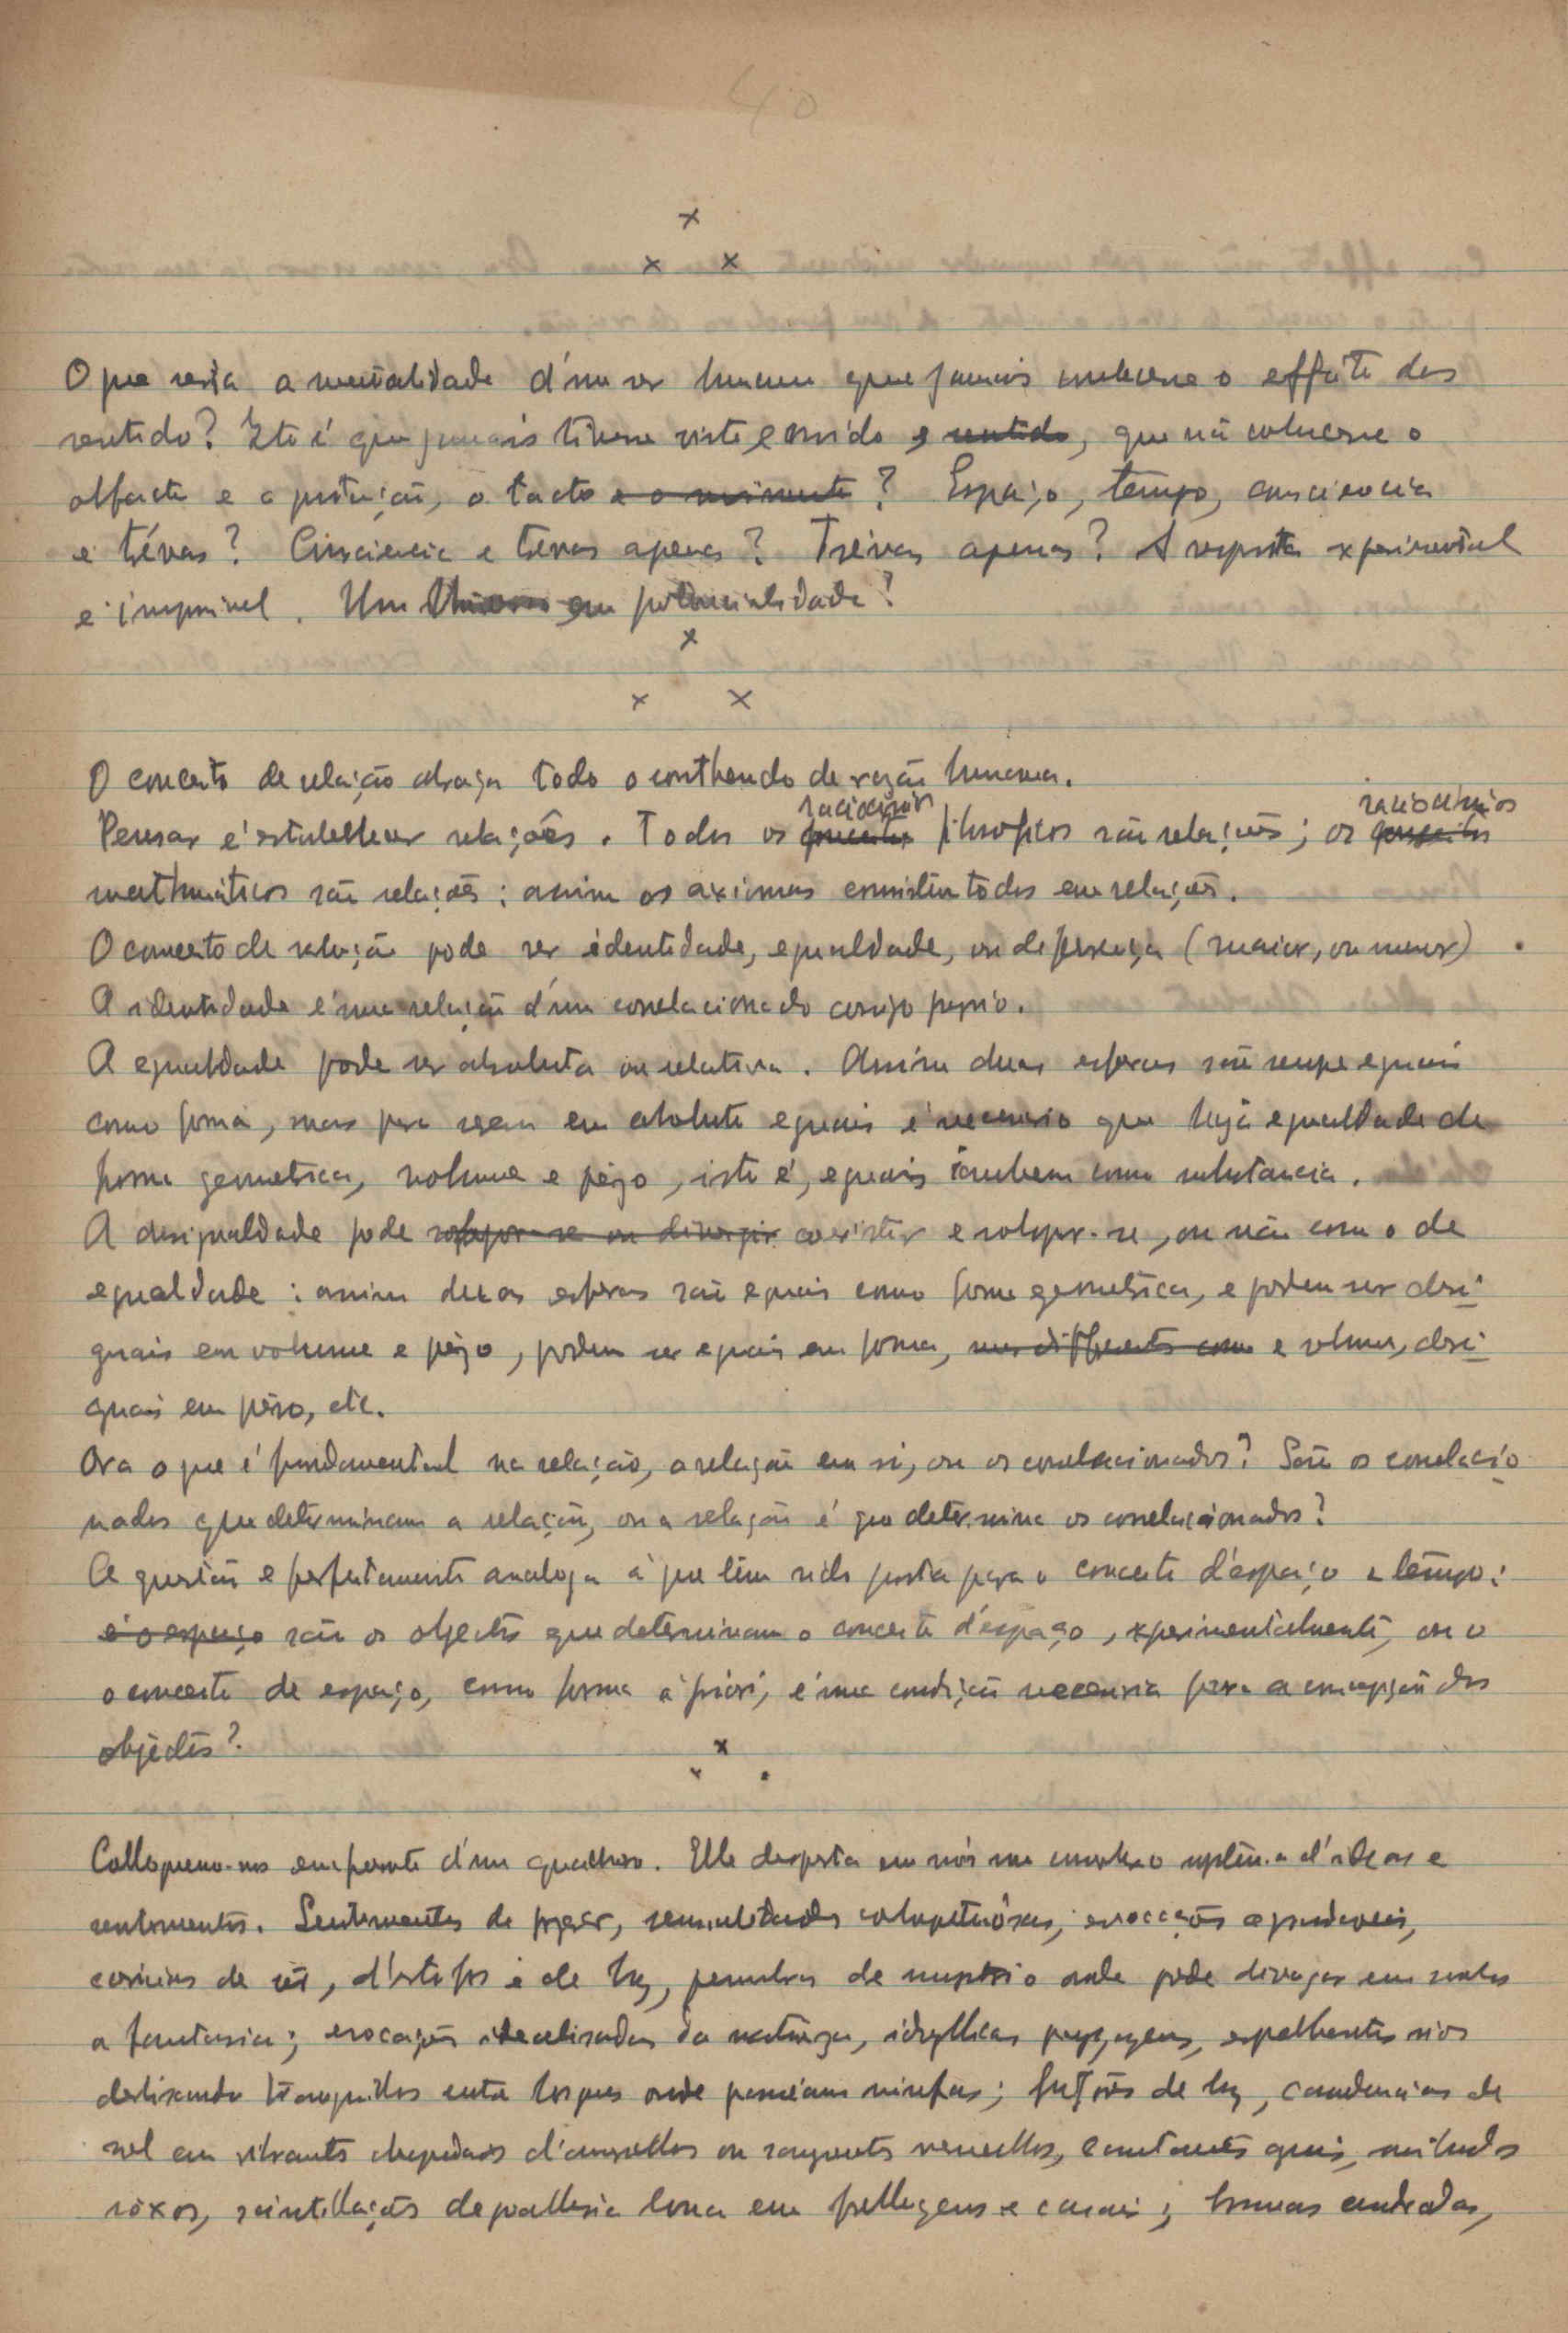 40
x
x x
O que seria a mentalidade d'um ser humano que jamais conhecesse o effeito dos
sentido? Isto é que jamais tivesse visto, e ouvido e sentido, que não conhecesse o
olfacto e a gustação, o tacto e o movimento? Espaço, tempo, consciencia
e trévas? Consciencia e trevas apenas? Trévas apenas? A resposta experimental
e' impossivel. Um Universo em potencialidade?
x
x x
O conceito de relação abraça todo o contheudo da razão humana.
raciocinios raciocinios
Pensar e' estabellecer relações. Todos os conceitos philosoficos são relações; os conceitos
mathmáticos são relações: assim os axiomas consistem todos em relações.
O conceito de relação pode ser identidade, egualdade, ou differença (maior, ou menor).
A identidade e' uma relação d'um correlacionado consigo proprio.
A egualdade pode ser absoluta ou relativa. Assim duas esferas são sempre eguais
como forma, mas para serem em absoluto eguais e' necessario que haja egualdade de
forma geometrica, volume e pêzo, isto é, eguais tambem como substancia.
A desigualdade pode sobrepor-se ou divergir coexistir e sobrepor-se, ou não com o de
egualdade: assim duas esferas são eguais como forma geometrica, e podem ser desi-
guais em volume e pêzo, podem ser eguais em forma, mas differentes como e volume, desi-
guais em pêso, etc.
Ora o que é fundamental na relação, a relação em si, ou os correlacionados? São os correlacio-
nados que determinam a relação, ou a relação é que determina os correlacionados?
A questão e perfeitamente analoga á que tem sido posta para o conceito d'espaço e tempo:
é o espaço são os objectos que determinam o conceito d'espaço, experimentalmente, ou o
o conceito de espaço, como forma á priori, e' uma condição necessaria para a concepção dos
objéctos?
x
x .
Colloquemo-nos em frente d'um quadro. Elle desperta em nós um complexo systema d'ideas e
sentimentos. Sentimentos de prazer, sensualidades voluptuósas, evocações agradaveis,
caricias de côr, d'estofos e de luz, penumbras de mysterio onde pode divagar em sonhos
a fantasia; evocações idealisadas da natureza, idyllicas paysagens, espelhentes rios
deslisando tranquillos entre bosques onde passeiam ninfas; de luz, candencias de
sol em vibrantes d'amarellos ou sangrentos vermellos, cantantes
rôxos, scintillações de pallheta louca em folhagens e casais; brumas